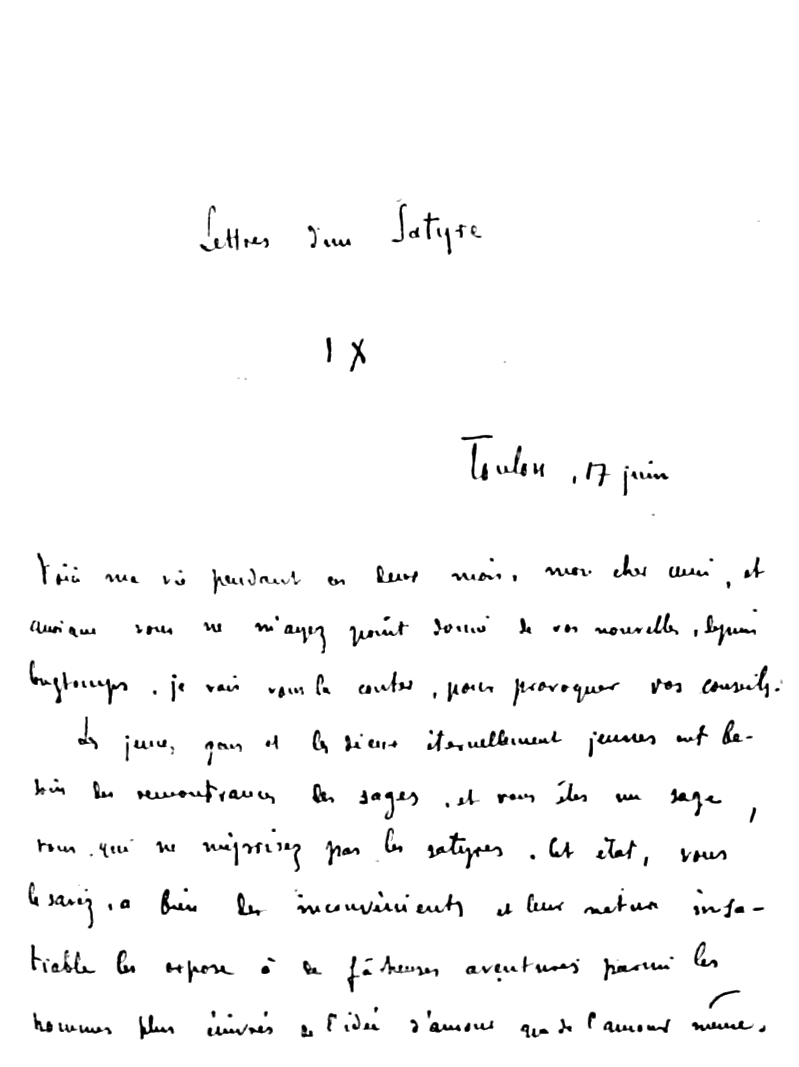 Lettres d'un Satyre
IX
Toulon, 17 juin
Voici ma vie pendant ces deux mois, mon cher ami, et
quoique vous ne m'ayez point donné de vos nouvelles, depuis
longtemps, je vais vous la conter, pour provoquer vos conseils.
Les jeunes gens et les dieux éternellement jeunes ont be-
soin des remontrances des sages, et vous êtes un sage,
vous, qui ne méprisez pas les satyres. Cet état, vous
le savez, a bien des inconvénients et leur nature insa-
tiable les expose à de fâcheuses aventures parmi les
hommes plus enivrés de l'idée d'amour que de l'amour même.